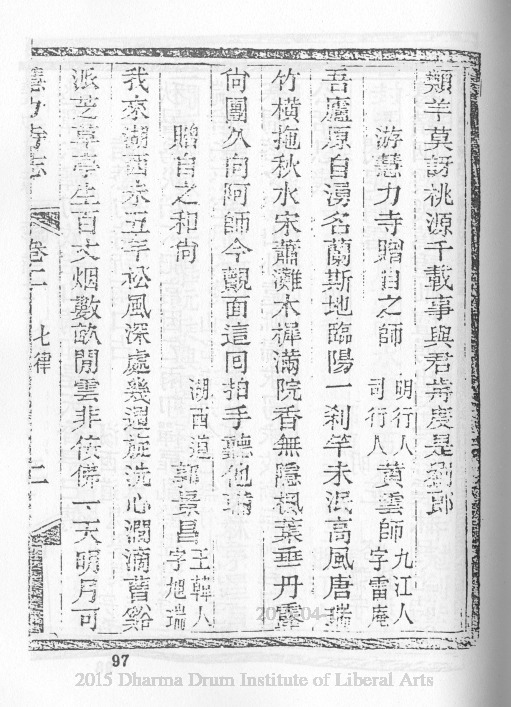 類羊莫訝桃源千載事與君前度是劉郎
游慧力寺贈自之師 明行人司行人 黃雲師 九江人字雷庵
吾廬原自湧名蘭斯地臨陽一刹竿未泯高風唐瑞
竹橫拖秋水宋蕭灘木樨滿院香無隱楓葉垂丹露
尚團久向阿師今覿面這囘拍手聽他瞞
贈自之和尚 湖西道 郭景昌 玉韓人字旭瑞
我來湖西未五年松風深處幾週旋洗心澗滴曹谿
派芝草亭生百丈烟數畝閒雲非俟佛一天明月可
慧力寺志 卷二 七律 二
97
2015 Dharma Drum Institute of Liberal Arts